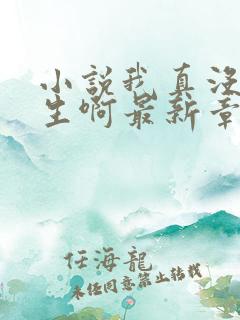 小説我真没
生啊最新章
任海龍
未经同意禁止转载